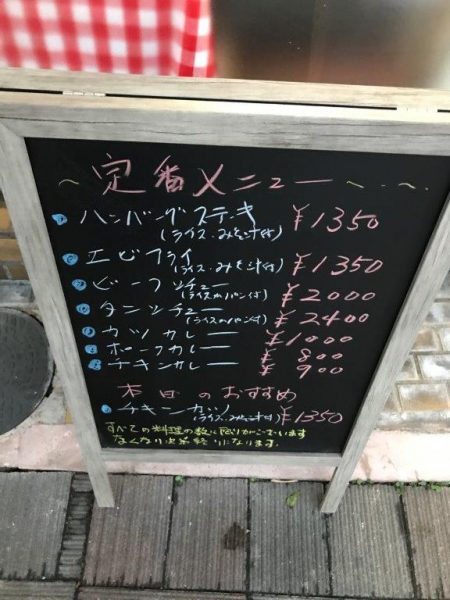 ～定番メニュー～
ハンバーグステーキ ¥1350
(ライス・みそ汁付)
エビフライ ¥1350
(ライス・みそ汁付)
ビーフシチュー ¥2000
(ライスorパン付)
タンシチュー ¥2400
(ライスorパン付)
カツカレー ¥1000
ポークカレー ¥800
チキンカレー ¥900
本日のおすすめ
チキンカツ ¥1350
(ライス・みそ汁付)
すべての料理の数に限りがございます
なくなり次第終りになります